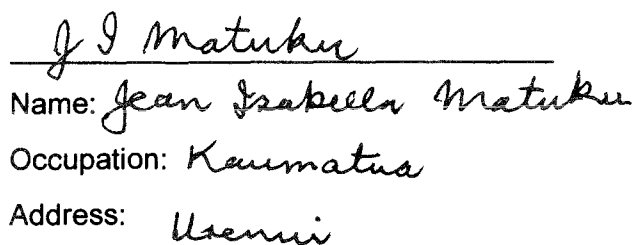 J I Matuku
Name: Jean Isabella Matuku
Occupation: Kaumatua
Address: Urenui